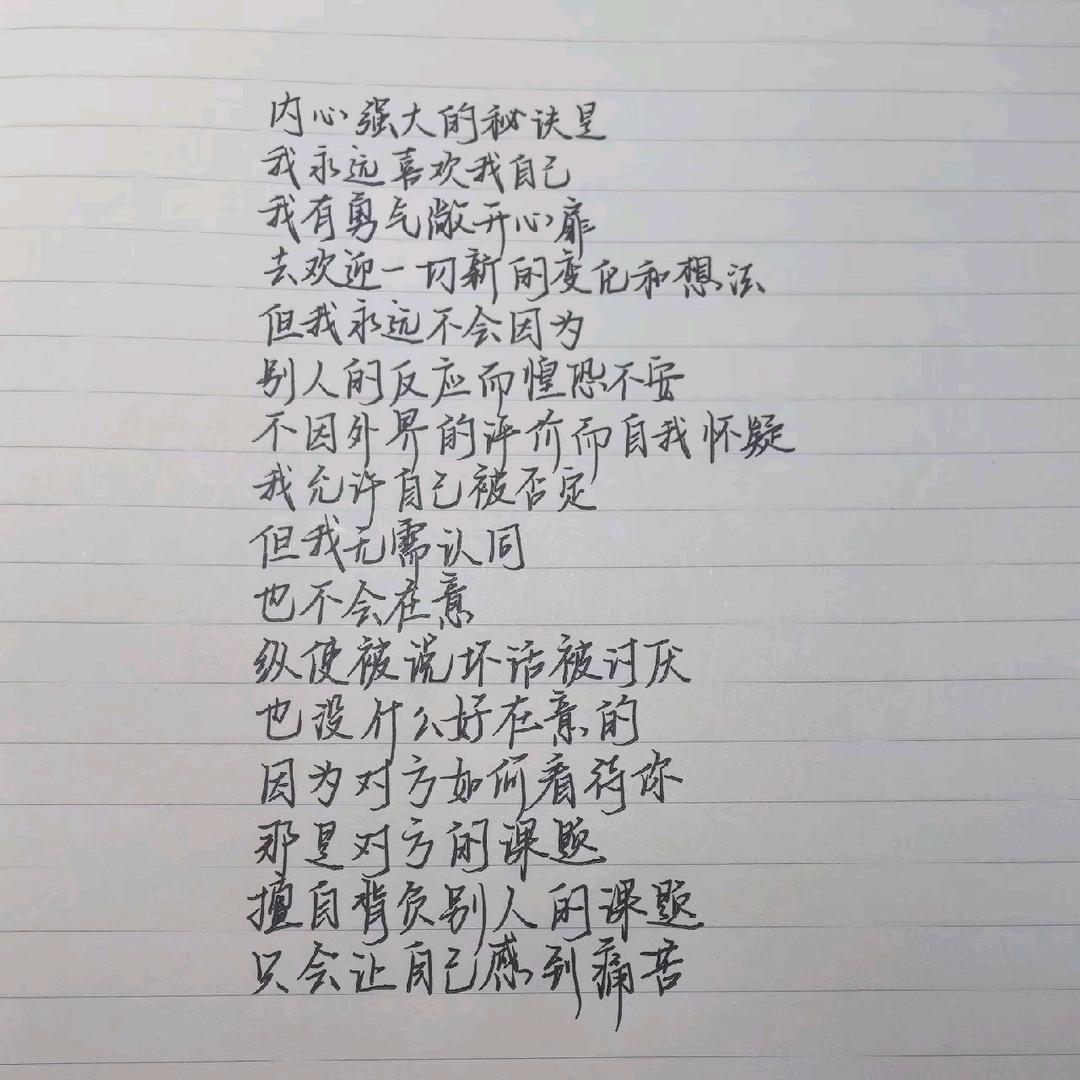 内心强大的秘诀是
我永远喜欢我自己
我有勇气敞开心扉
去欢迎一切新的变化和想法
但我永远不会因为
别人的反应而惶恐不安
不因外界的评价而自我怀疑
我允许自己被否定
但我无需认同
也不会在意
纵使被说坏话被讨厌
也没什么好在意的
因为对方如何看待你
那是对方的课题
擅自背负别人的课题
只会让自己感到痛苦